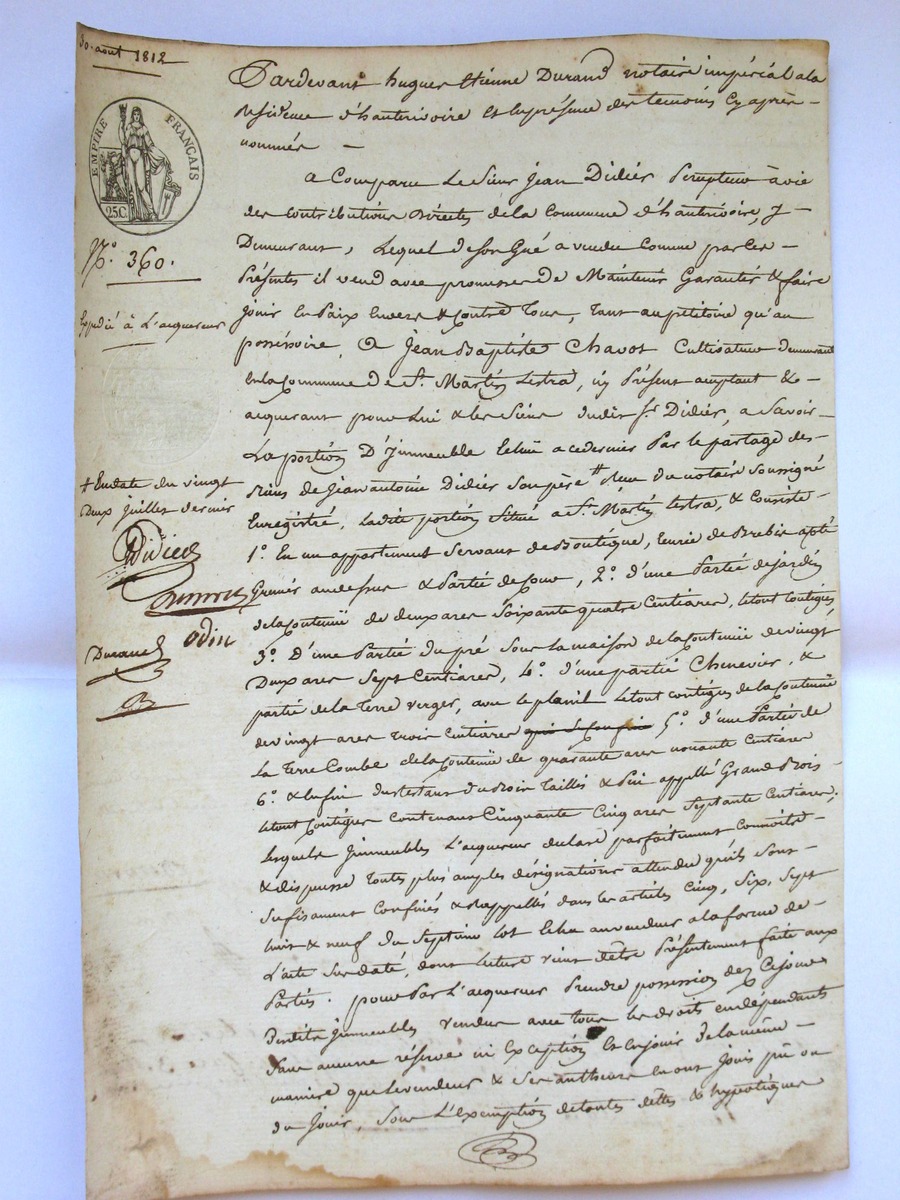 30. aout 1812
EMPIRE FRANÇAIS
25C.
N.º 360.
Expédié à L'acquereur
# En date du vingt
deux juillet dernier
Didier
Odin
Durand
Pardevant hugues Etienne Durand notaire impérial a la
Residence d'hauterivoire et en présence des temoins cy après
nommés
a Comparu Le Sieur Jean Didier Percepteur à vie
des Contributions Directes de la Commune d'hauterivoire, y
Demeurant, Lequel de son Gré a vendu Comme par Ces
Présentes il vend avec promesse de Maintenir Garantir & faire
Jouir en Paix Envers & Contre Tous, tant au petitoire qu'au
posséssoire, A Jean Baptiste Chavot Cultivateur demeurant
En la Commune de St. Martin Lestra, icy Présent acceptant &
acquerant pour Lui & les Siens dudit Sr. Didier, a Savoir
La portion D'Immeuble Echue a ce dernier Par le partage des
Biens de Jean antoine Didier Son père # Reçu du notaire Soussigné
Enregistré, Ladite portion Située a St. Martin Lestra, & Consiste
1º. En un appartement Servant de Boutique, Ecurie de Brebis
Grenier au dessus & Partie de Cour, 2º. d'une Partie de jardin
de la Contenüe de deux ares Soixante quatre Centiares, le tout Contigus,
3º. D'une Partie du pré Sous la maison de la Contenüe de vingt
Deux ares Sept Centiares, 4º. d'une partie Chenevier, &
partie de la Terre verger, avec le planil le tout contigus de la Contenüe
de vingt ares trois Centiares 5º. d'une Partie de
La Terre Combe de la Contenüe de quarante ares nonante Centiares
6º. & Enfin du restant du Bois Taillis & Pin appellé Grand Bois
le tout Contigus Contenant Cinquante Cinq ares Septante Centiares;
Lesquels Immeubles L'acquereur declare parfaitement Connoitre
& dispense toutes plus amples désignations attendu qu'ils Sont
Sufisament Confinés & Rappellés dans les articles Cinq, Six, Sept
huit & neuf du Septieme Lot Echu au vendeur a la forme de
L'acte Sus daté, dont Lecture vient d'être Présentement faite aux
Parties. pour Par L'acquereur Prendre possession dez Cejour
Desdits Immeubles vendus avec tous les droits en dépendants
Sans aucune réserve ni Exception Et en jouir de la même
maniere que le vendeur & Ses autheurs en ont Joui pû ou
du Jouir, Sous L'Exemption de toutes dettes & hypotèques